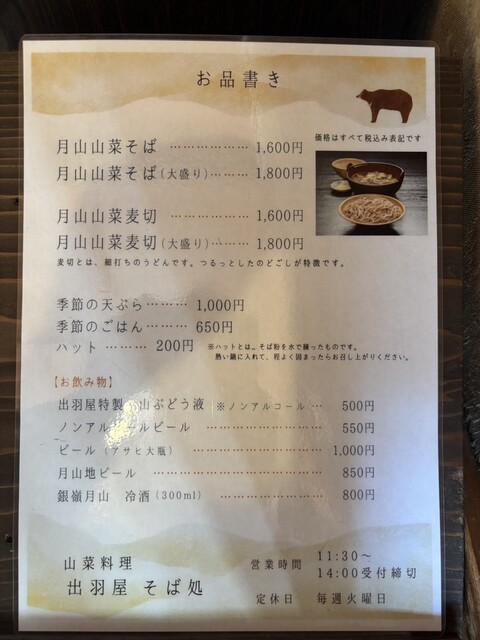 お品書き
価格はすべて税込み表記です
月山山菜そば ……………… 1,600円
月山山菜そば(大盛り)……… 1,800円
月山山菜麦切 ……………… 1,600円
月山山菜麦切(大盛り)……… 1,800円
麦切とは、細打ちのうどんです。つるっとしたのどごしが特徴です。
季節の天ぷら……… 1,000円
季節のごはん……… 650円
ハット ……… 200円
※ハットとは…そば粉を水で練ったものです。
熱い鍋に入れて、程よく固まったらお召し上がりください。
【お飲み物】
出羽屋特製 山ぶどう液 ※ノンアルコール … 500円
ノンアルコールビール ……………… 550円
ビール(アサヒ大瓶) ……………… 1,000円
月山地ビール ……………………… 850円
銀嶺月山 冷酒(300ml) ……………… 800円
山菜料理
出羽屋 そば処
営業時間 11:30~
14:00受付締切
定休日 毎週火曜日